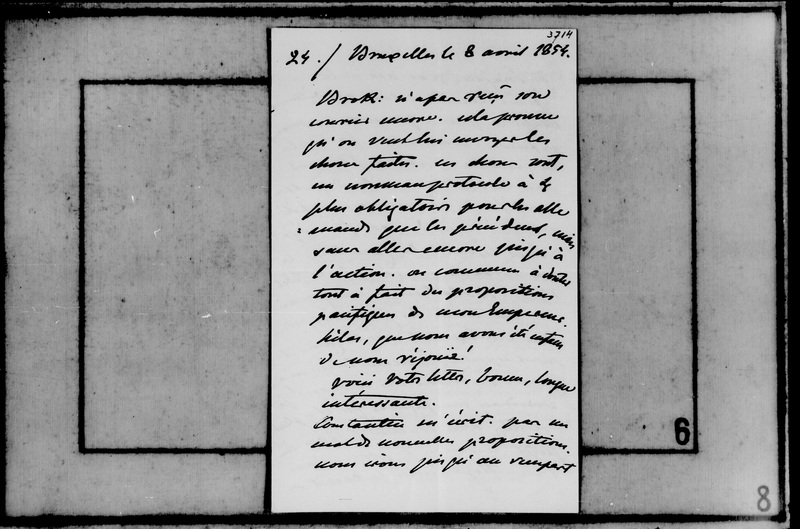 3714
24./ Bruxelles le 8 avril 1854.
Brok: n'a pas reçu son
courrier encore. cela prouve
qu'on veut lui envoyer les
choses faites. ces choses sont,
un nouveau protocole à 4
plus obligatoire pour les alle
= mands que les précédents, mais
sans aller encore jusqu'à
l'action. on commence à douter
tout à fait des propositions
pacifiques de mon Empereur.
hélas, que nous avons été
de nous réjouir!
voici votre lettre, bonne, longue
intéressante.
Constantin m'écrit. pas un
mot de nouvelles propositions.
nous irons jusqu'au rempart
6
8